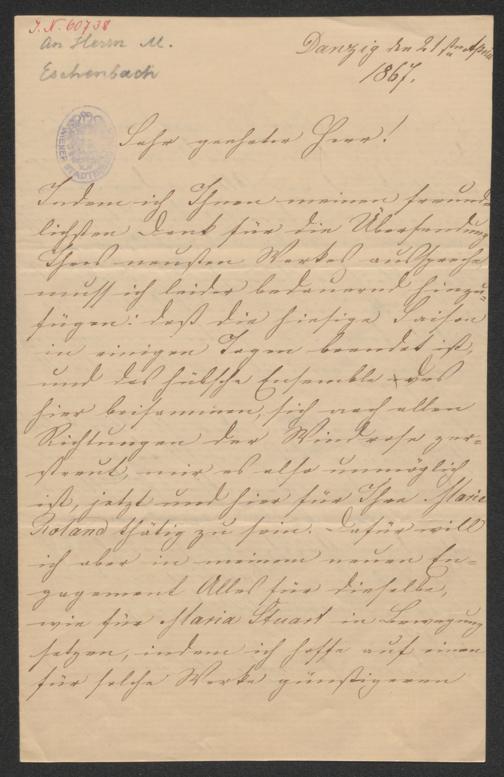 J. N. 60738
An Herrn M.
Eschenbach
Danzig den 21sten April
1867.
WIENER STADTBIBL
Sehr geehrter Herr!
Indem ich Ihnen meinen freund-
lichsten Dank für die Übersendung
Ihres neusten Werkes ausspreche
muss ich leider bedauernd hinzu-
fügen: daß die hiesige Saison
in einigen Tagen beendet ist,
und das hübsche Ensemble das
hier beisammen, sich nach allen
Richtungen der Windrose zer-
streut, mir es also unmöglich
ist, jetzt und hier für Ihre Marie
Roland thätig zu sein. Dafür will
ich aber in meinem neuen En-
gagement Alles für dieselbe,
wie für Maria Stuart in Bewegung
setzen, indem ich hoffe auf einen
für solche Werke günstigeren